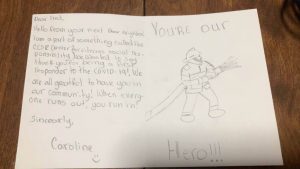 Dear Jud,
Hello from your next door neighbor.
I am a part of something called the
CCSR
social res-
ponsibility
to say
thank you for being a first
responder to the covid-19! We
are all grateful to have you in
our community! When every-
one runs out, you run in!
Sincerely,
Caroline
YOU'RE OUR
Hero!!!